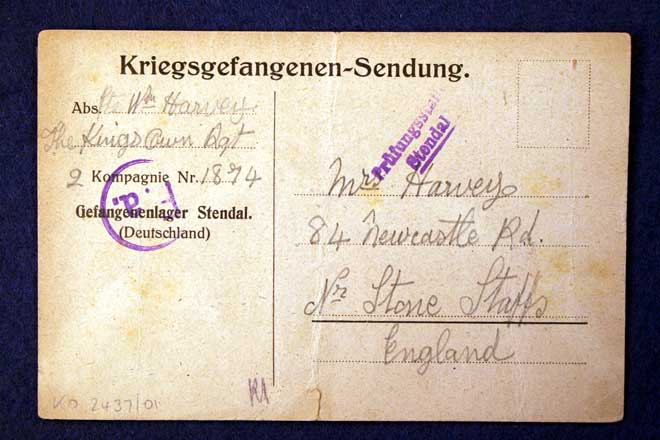 Kriegsgefangenen-Sendung.
Abs. Pte Wm Harvey
The Kings Own Rgt
2 Kompagnie Nr. 1874
Gefangenenlager Stendal.
(Deutschland)
F. a.
Prüfungsstelle
Stendal
Mrs Harvey
84 Newcastle Rd.
Nr Stone Staffs
England
KO 2437/01